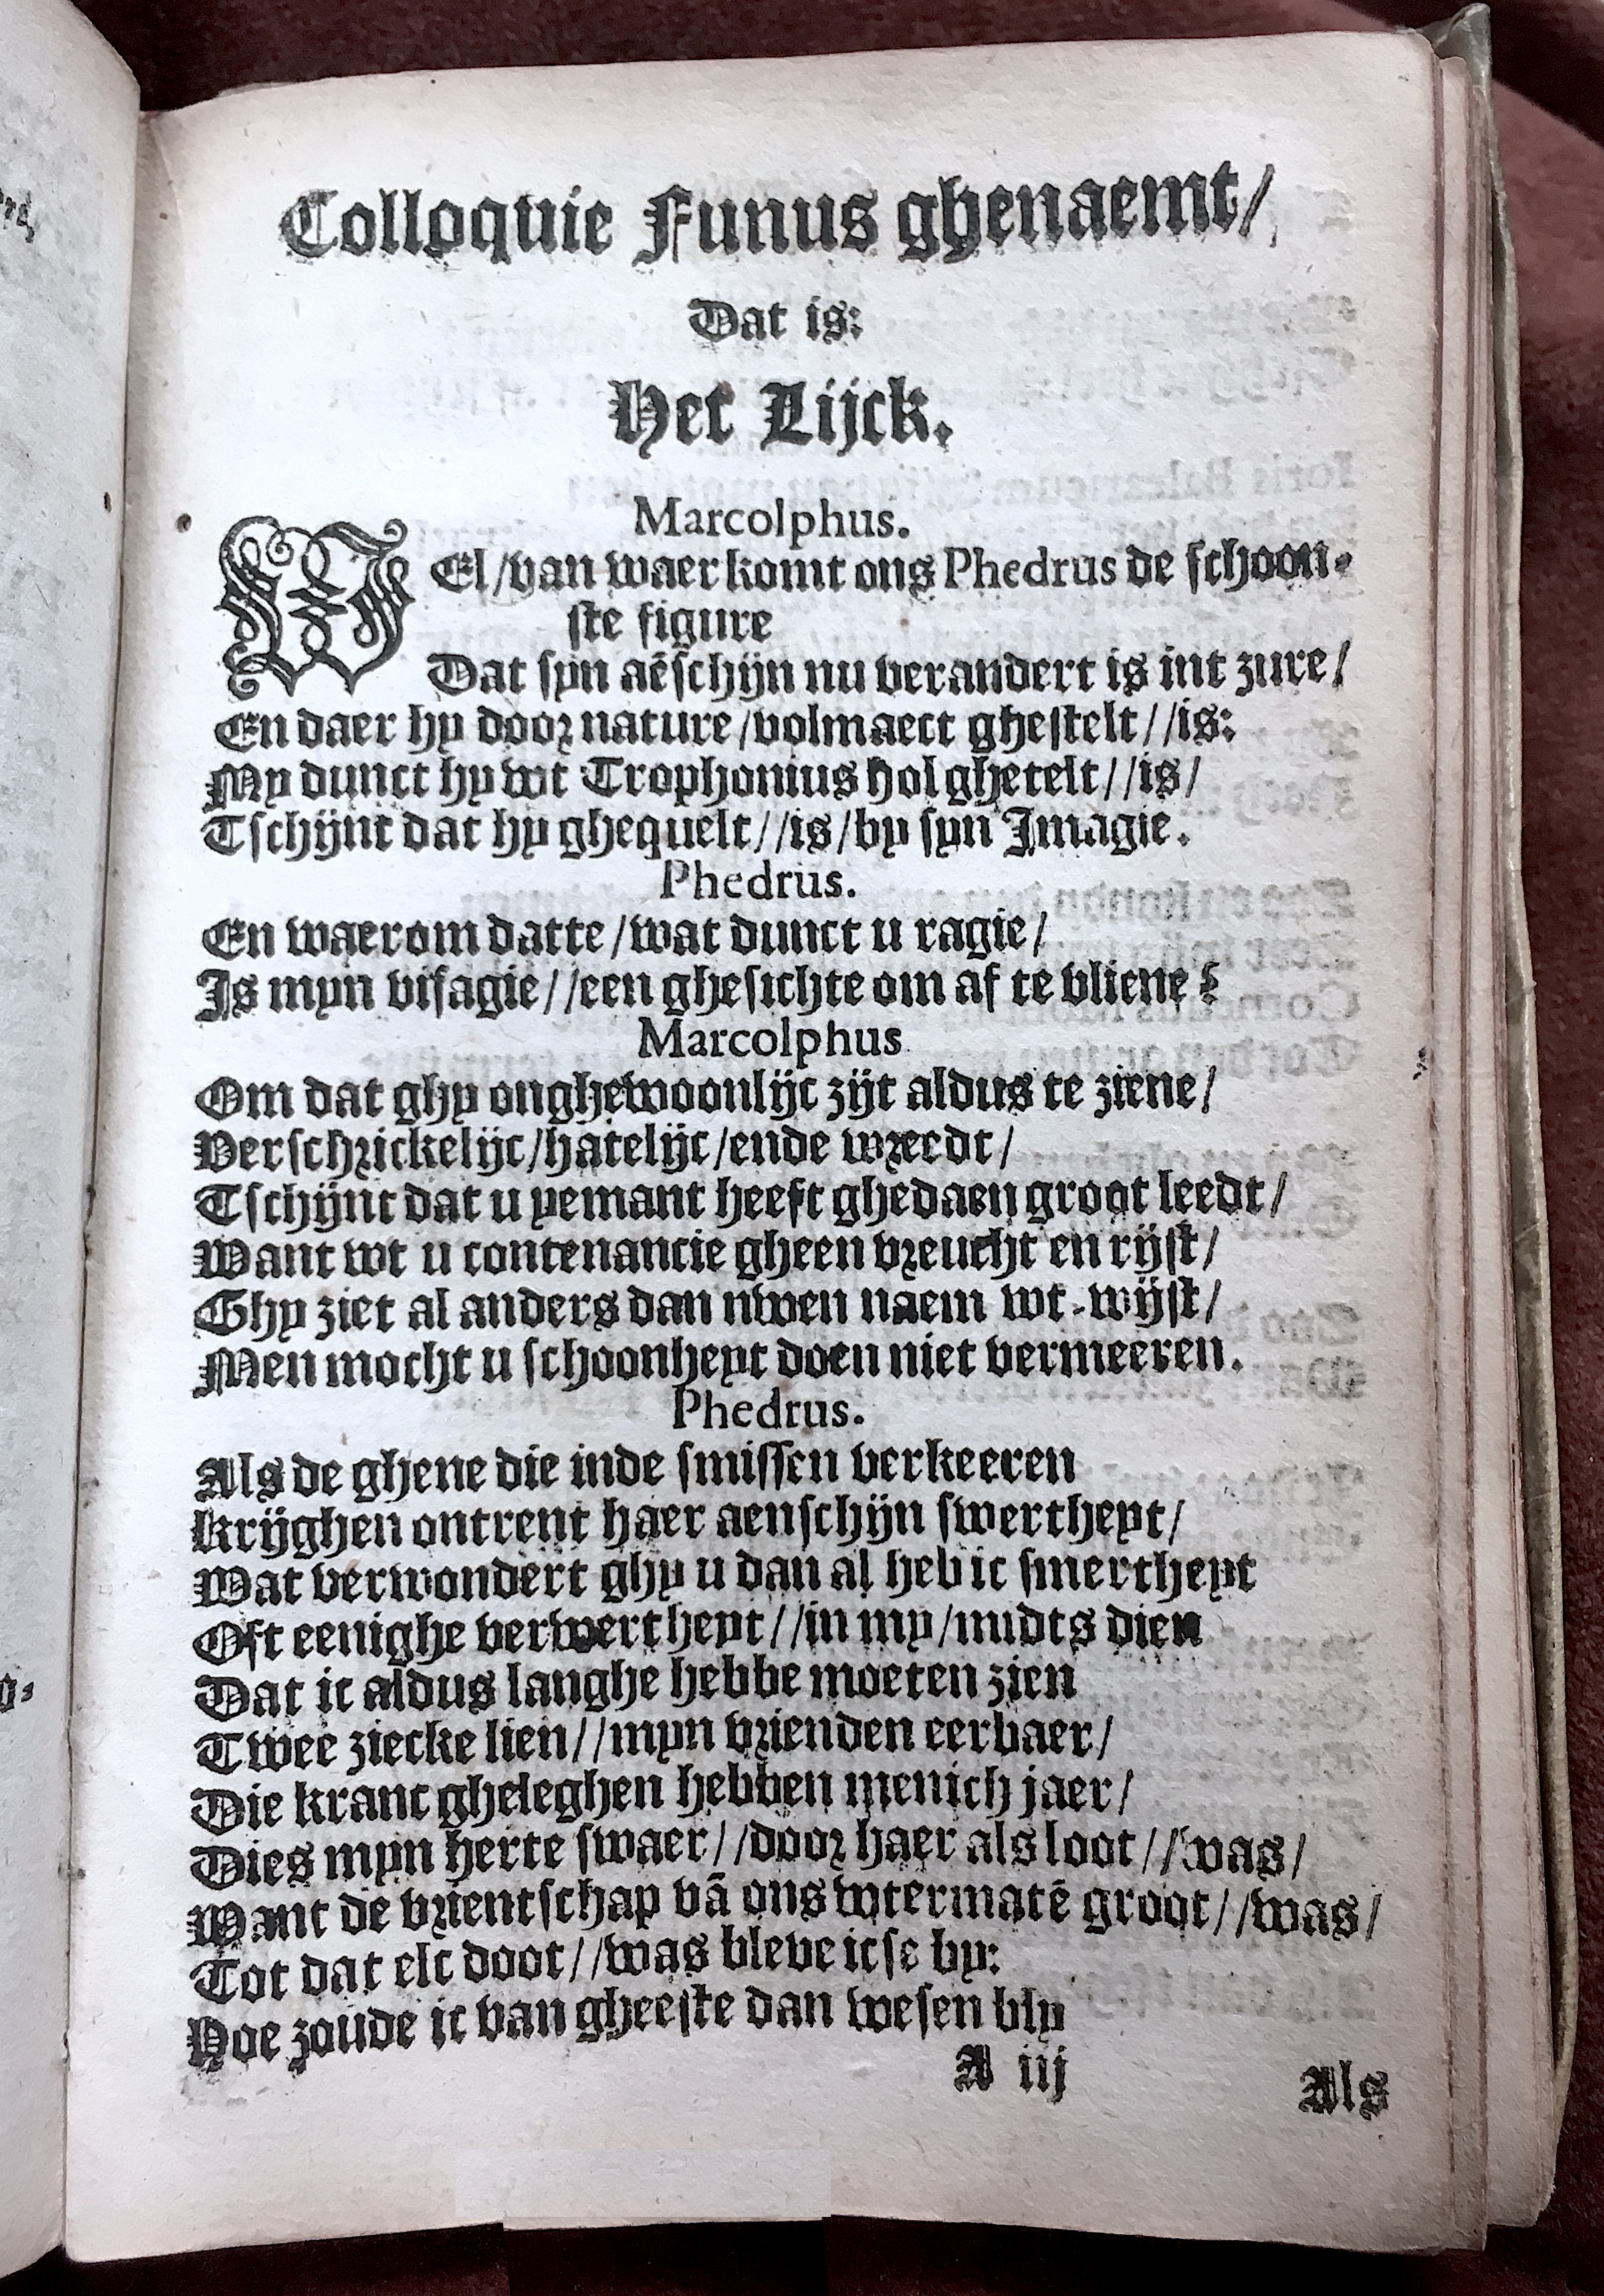 Colloquie Funus ghenaemt/
Dat is:
Het Lijck.
Marcolphus.
WEl/van waer komt ons Phedrus de schoon-
ste figure
Dat syn aẽschijn nu verandert is int zure/
En daer hy door nature/volmaect ghestelt//is:
My dunct hy wt Trophonius hol ghetelt//is/
Tschijnt dat hy ghequelt//is/by syn Imagie.
Phedrus.
En waerom datte/wat dunct u ragie/
Is myn visagie//een ghesichte om af te vliene?
Marcolphus
Om dat ghy onghewoonlijc zijt aldus te ziene/
Verschrickelijc/hatelijc/ende wreedt/
Tschijnt dat u yemant heeft ghedaen groot leedt/
Want wt u contenancie gheen vreucht en rijst/
Ghy ziet al anders dan uwen naem wt-wijst/
Men mocht u schoonheyt doen niet vermeeren.
Phedrus.
Als de ghene die inde smissen verkeeren
Krijghen ontrent haer aenschijn swertheyt/
Wat verwondert ghy u dan al heb ic smertheyt
Oft eenighe verwertheyt//in my/midts dien
Dat ic aldus langhe hebbe moeten zien
Twee ziecke lien//myn vrienden eerbaer/
Die kranc gheleghen hebben menich jaer/
Dies myn herte swaer//door haer als loot//was/
Want de vrientschap vã ons wtermatẽ groot//was/
Tot dat elc doot//was bleve icse by:
Hoe zoude ic van gheeste dan wesen bly
A iij
Als